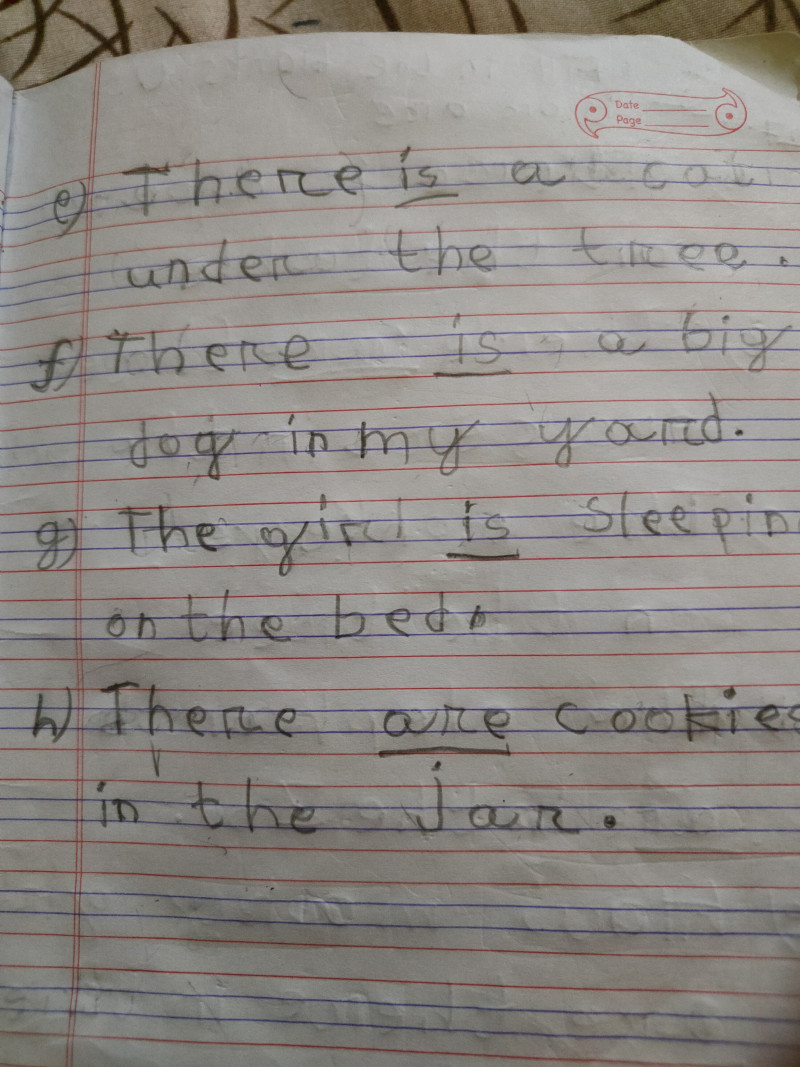 Date
Page
e) There is a cat
under the tree.
f) There is a big
dog in my yard.
g) The girl is Sleepin
on the bed.
h) There are cookies
in the jar.